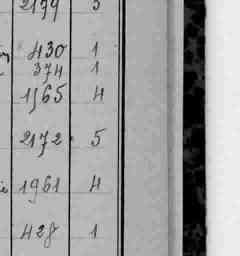 2179 5
430 1
374 1
1565 4
2172 5
1961 4
428 1